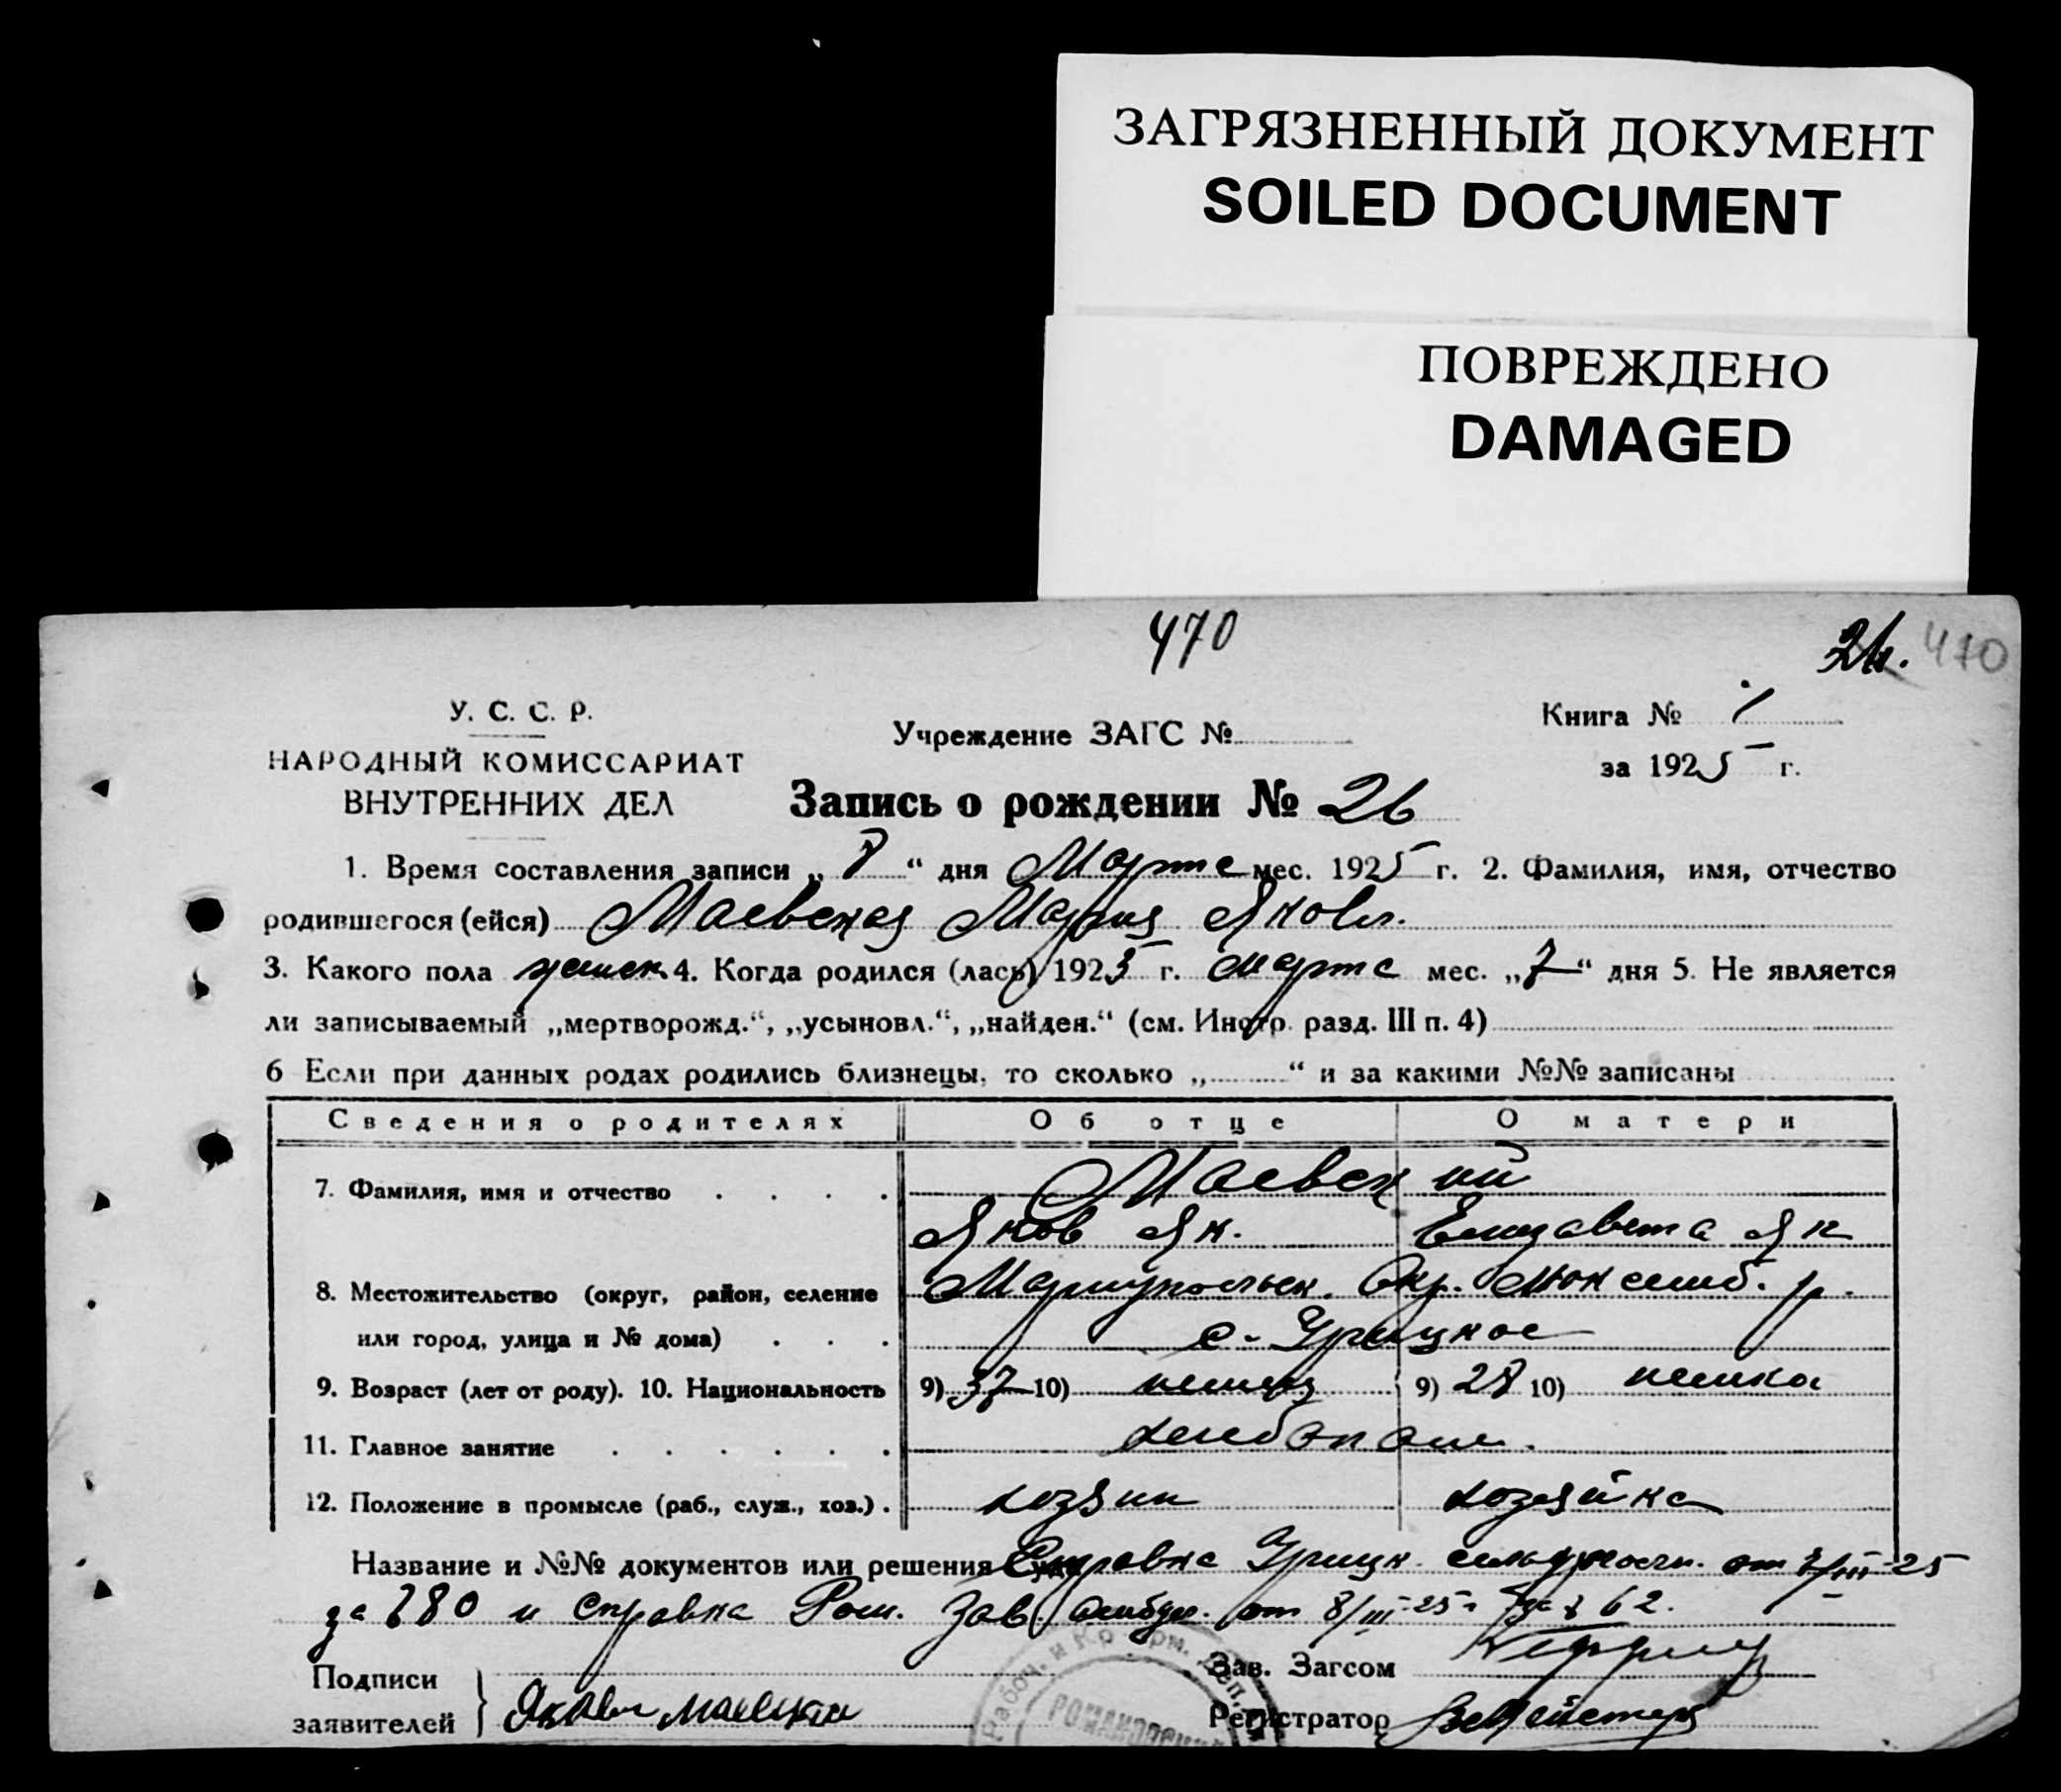 ЗАГРЯЗНЕННЫЙ ДОКУМЕНТ
SOILED DOCUMENT
ПОВРЕЖДЕНО
DAMAGED
470
26. 470
У. С. С. Р.
НАРОДНЫЙ КОМИССАРИАТ
ВНУТРЕННИХ ДЕЛ
Учреждение ЗАГС №
Книга № 1
за 1925 г.
Запись о рождении № 26
1. Время составления записи „ 8 “ дня Марта мес. 1925 г. 2. Фамилия, имя, отчество
родившегося (ейся) Маевская Мария Яковл.
3. Какого пола женск 4. Когда родился (лась) 1925 г. Марта мес. „ 7 “ дня 5. Не является
ли записываемый „мертворожд.“, „усыновл.“, „найден.“ (см. Инстр. разд. III п. 4)
6 Если при данных родах родились близнецы, то сколько „ “ и за какими №№ записаны
Сведения о родителях Об отце О матери
7. Фамилия, имя и отчество Маевский
Яков Як. Елизавета Як
8. Местожительство (округ, район, селение Мариупольск. Окр. Люксемб. р.
или город, улица и № дома) с. Урицкое
9. Возраст (лет от роду). 10. Национальность 9) 37 10) немец 9) 28 10) немка
11. Главное занятие хлебопаш.
12. Положение в промысле (раб., служ., хоз.) хозяин хозяйка
Название и №№ документов или решения Справка Урицк. от 7/III-25
за 280 и справка зав. от 8/III-25 г. за № 62.
Подписи
заявителей
Яков
Рабоч. и Кр Деп.
Зав. Загсом
Регистратор